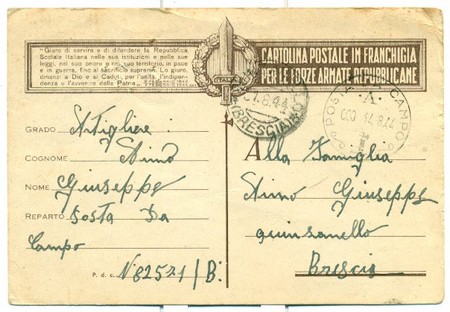 "Giuro di servire e di difendere la Repubblica
Sociale Italiana nelle sue istituzioni e nelle sue
leggi, nel suo onore e nel suo territorio, in pace
e in guerra, fino al sacrificio supremo. Lo giuro,
dinanzi a Dio e ai Caduti, per l'unità, l'indipen-
denza e l'avvenire della Patria.
ITALIA
CARTOLINA POSTALE IN FRANCHIGIA
PER LE FORZE ARMATE REPUBBLICANE
.8.44
(BRESCIA)
POSTA CAMPO
A
14.8.44
GRADO Artigliere
COGNOME
NOME Giuseppe
REPARTO Posta Da
Campo
P. d. c. N. 82521/B.
Alla Famiglia
Giuseppe
quinsanello
Brescia